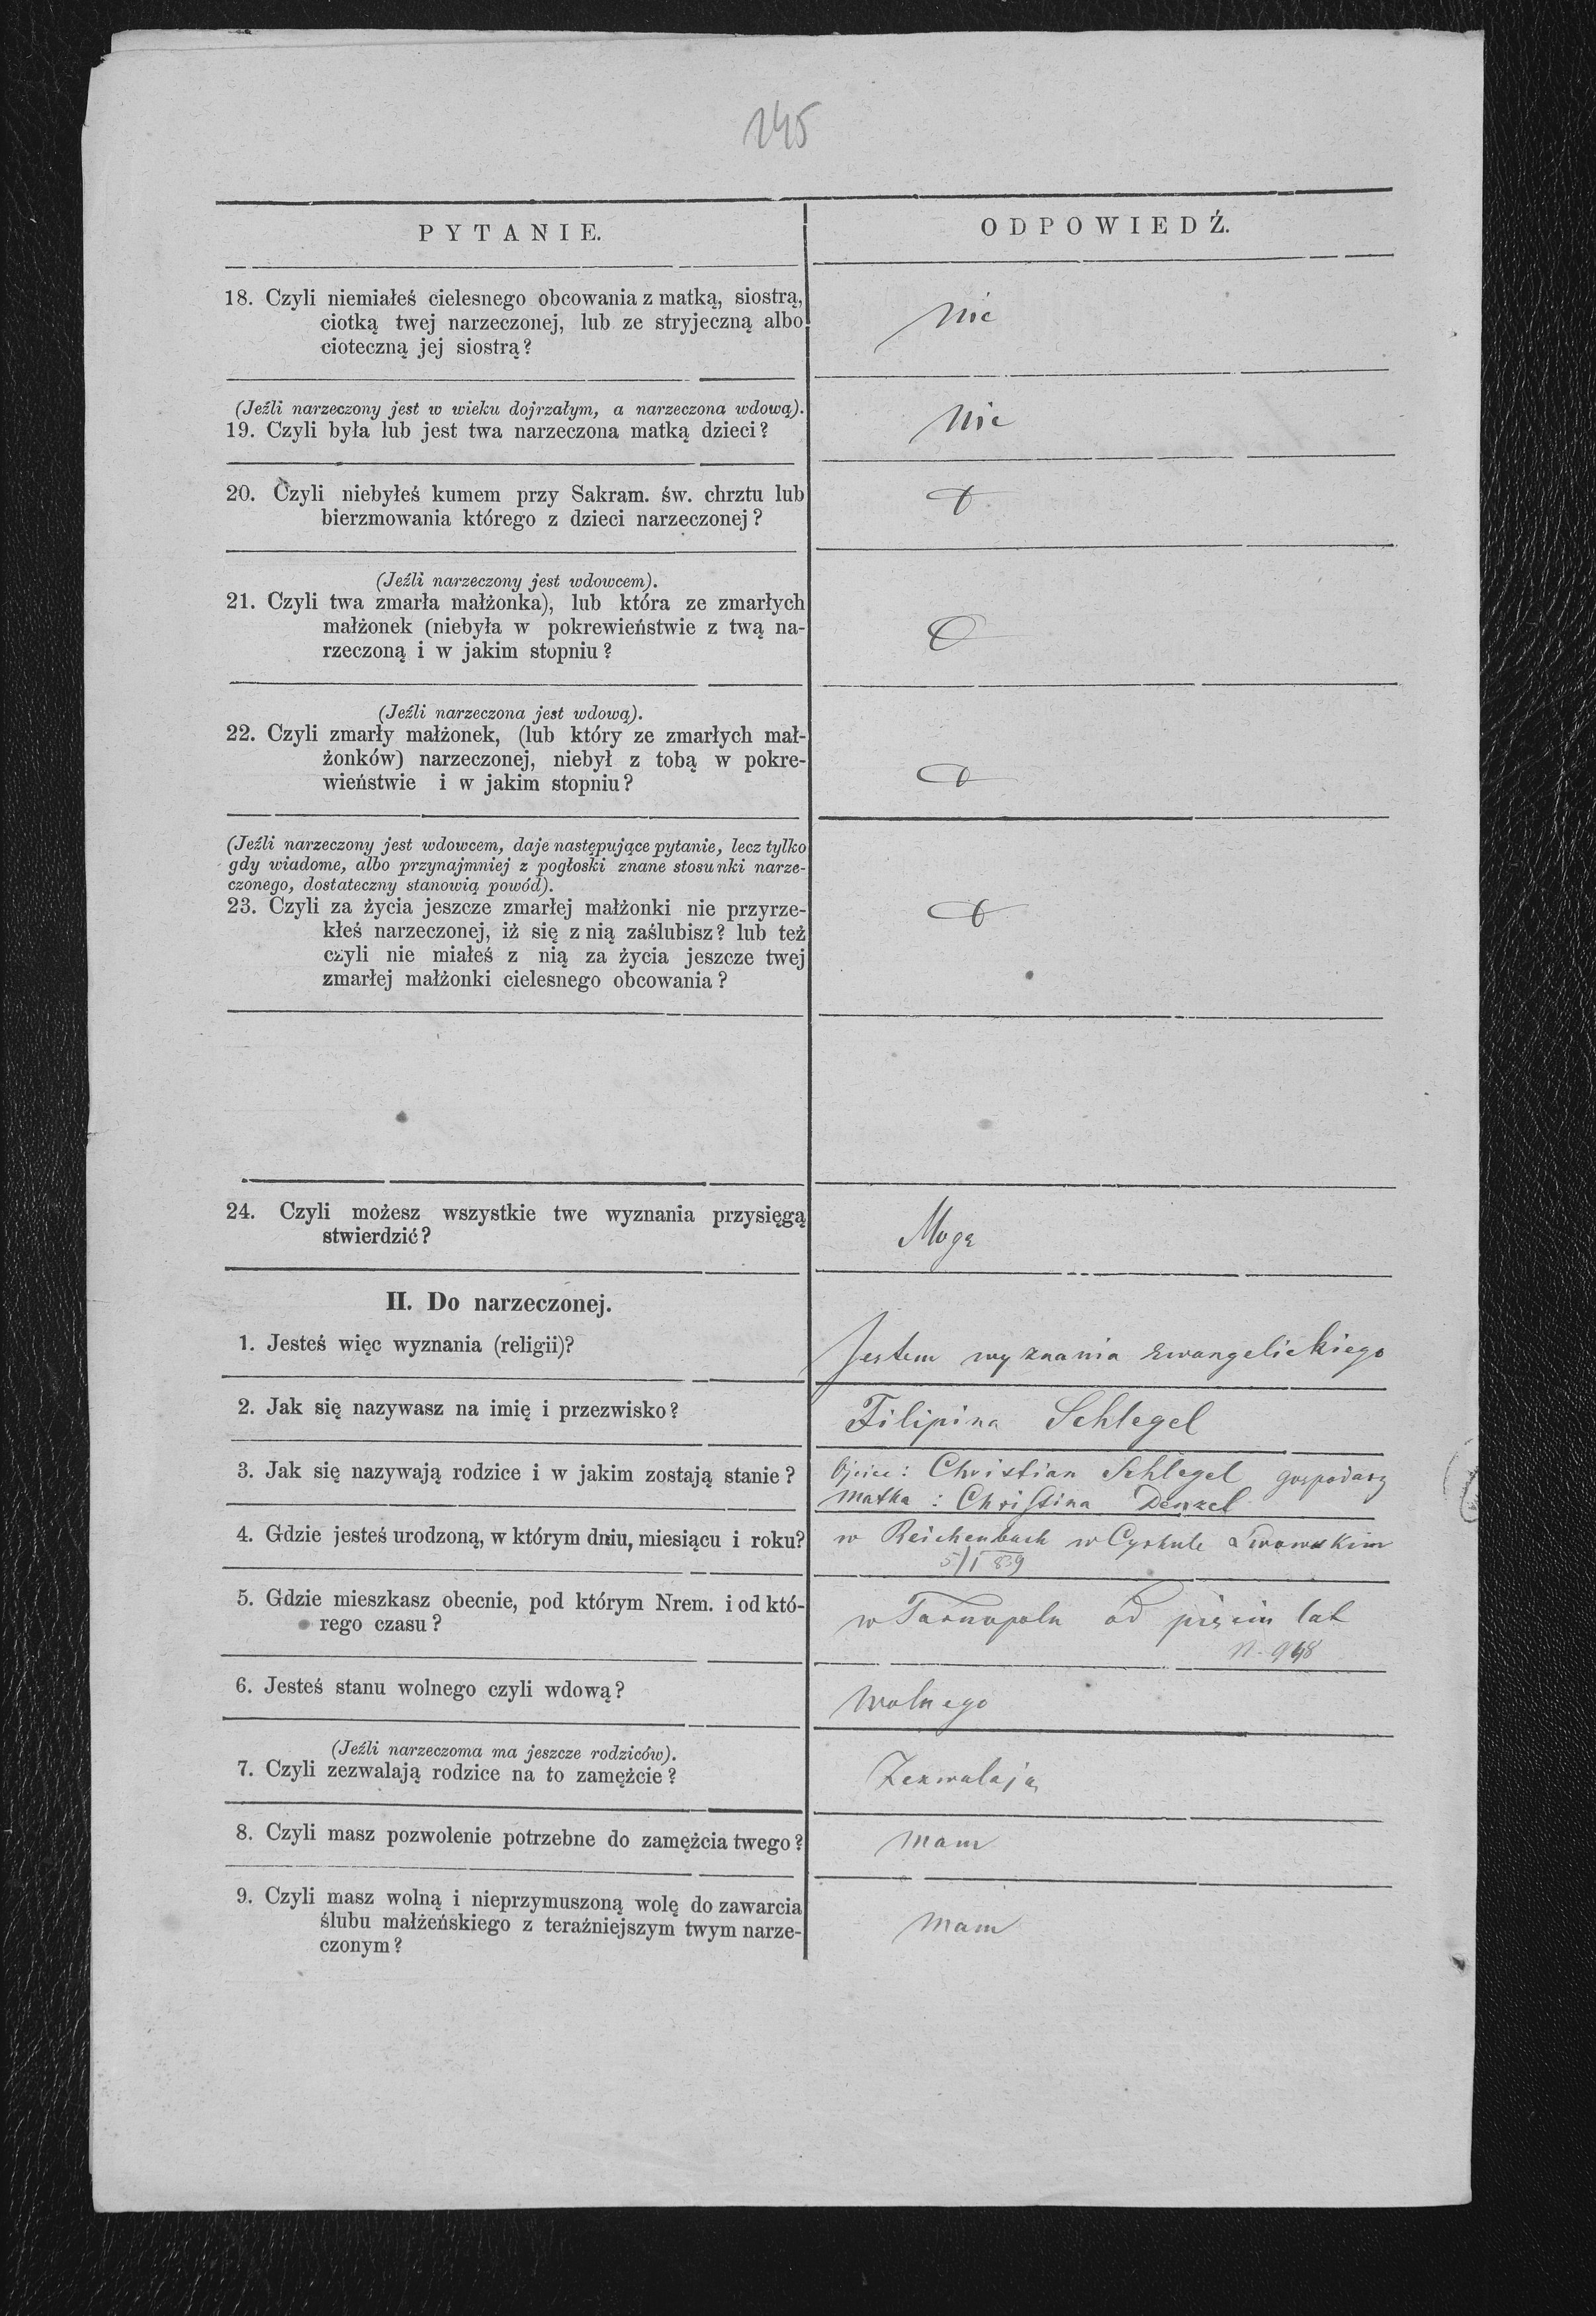 145
PYTANIE.
ODPOWIEDŹ.
18. Czyli niemiałeś cielesnego obcowania z matką, siostrą,
ciotką twej narzeczonej, lub ze stryjeczną albo
cioteczną jej siostrą?
Nie
(Jeźli narzeczony jest w wieku dojrzałym, a narzeczona wdową).
19. Czyli była lub jest twa narzeczona matką dzieci?
Nie
20. Czyli niebyłeś kumem przy Sakram. św. chrztu lub
bierzmowania którego z dzieci narzeczonej?
(Jeźli narzeczony jest wdowcem).
21. Czyli twa zmarła małżonka), lub która ze zmarłych
małżonek (niebyła w pokrewieństwie z twą na-
rzeczoną i w jakim stopniu?
(Jeźli narzeczona jest wdową).
22. Czyli zmarły małżonek, (lub który ze zmarłych mał-
żonków) narzeczonej, niebył z tobą w pokre-
wieństwie i w jakim stopniu?
(Jeźli narzeczony jest wdowcem, daje następujące pytanie, lecz tylko
gdy wiadome, albo przynajmniej z pogłoski znane stosunki narze-
czonego, dostateczny stanowią powód).
23. Czyli za życia jeszcze zmarłej małżonki nie przyrze-
kłeś narzeczonej, iż się z nią zaślubisz? lub też
czyli nie miałeś z nią za życia jeszcze twej
zmarłej małżonki cielesnego obcowania?
24. Czyli możesz wszystkie twe wyznania przysięgą
stwierdzić?
Mogę
II. Do narzeczonej.
1. Jesteś więc wyznania (religii)?
Jestem wyznania Ewangelickiego
2. Jak się nazywasz na imię i przezwisko?
Filipina Schlegel
3. Jak się nazywają rodzice i w jakim zostają stanie?
Ojciec: Christian Schlegel gospodarz
Matka: Christina Denzel
4. Gdzie jesteś urodzoną, w którym dniu, miesiącu i roku?
w Reichenbach w Cyrkule Lwowskim
5/I 839
5. Gdzie mieszkasz obecnie, pod którym Nrem. i od któ-
rego czasu?
w Tarnopolu od pięciu lat
N.
6. Jesteś stanu wolnego czyli wdową?
Wolnego
(Jeźli narzeczoma ma jeszcze rodziców).
7. Czyli zezwalają rodzice na to zamężcie?
Zezwalają
8. Czyli masz pozwolenie potrzebne do zamężcia twego?
Mam
9. Czyli masz wolną i nieprzymuszoną wolę do zawarcia
ślubu małżeńskiego z teraźniejszym twym narze-
czonym?
Mam